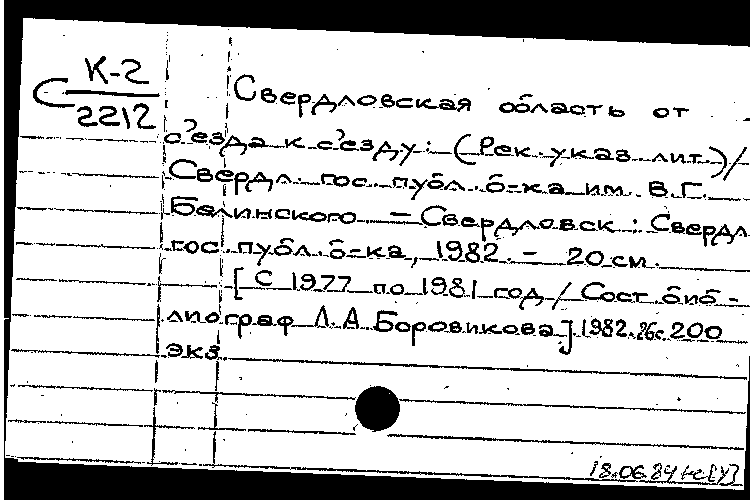 С К-2
2212
Свердловская область от
с'езда к с'езду: (Рек. указ. лит.)/
Свердл. гос. публ. б-ка им. В.Г.
Белинского. – Свердловск : Свердл
гос. публ. б-ка, 1982. – 20 см.
[С 1977 по 1981 год / Сост. биб-
лиограф Л.А. Боровикова] 1982. 26с. 200
экз.
18.06.84